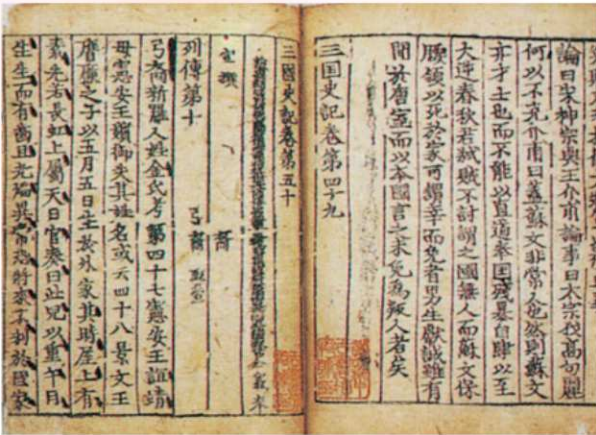 論曰宋神宗與王介甫論事曰太宗伐高句麗
何以不克介甫曰蓋蘇文非常人也然則蘇文
亦才士也而不能以直道奉國殘暴自肆以至
大逆春秋君弑賊不討謂之國無人而蘇文保
腰領以死於家可謂幸而免者男生獻誠雖有
聞於唐室而以本國言之未免為叛人者矣
三国史記卷第四十九
三國史記卷第五十
宣撰
列傳第十
弓裔 甄萱
弓裔新羅人姓金氏考第四十七憲安王誼靖
母憲安王嬪御失其姓名或云四十八景文王
膺廉之子以五月五日生於外家其時屋上有
素光若長虹上屬天日官奏曰此兒以重午日
生生而有齒且光焰異常恐將來不利於國家